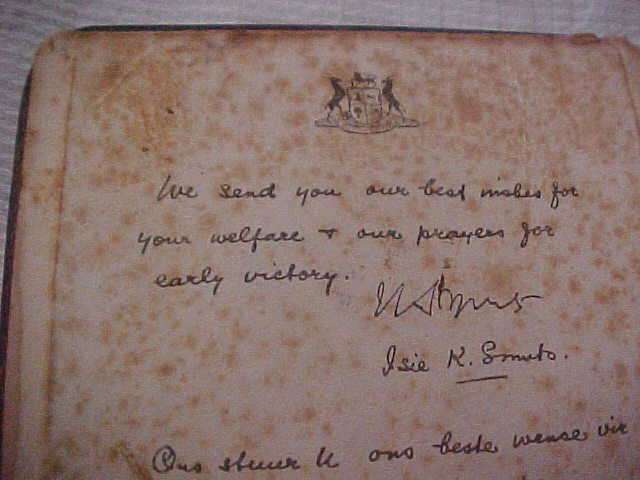 We send you our best wishes for
your welfare & our prayers for
early victory.
Isie K. Smuts.
Ons stuur U ons beste wense vir